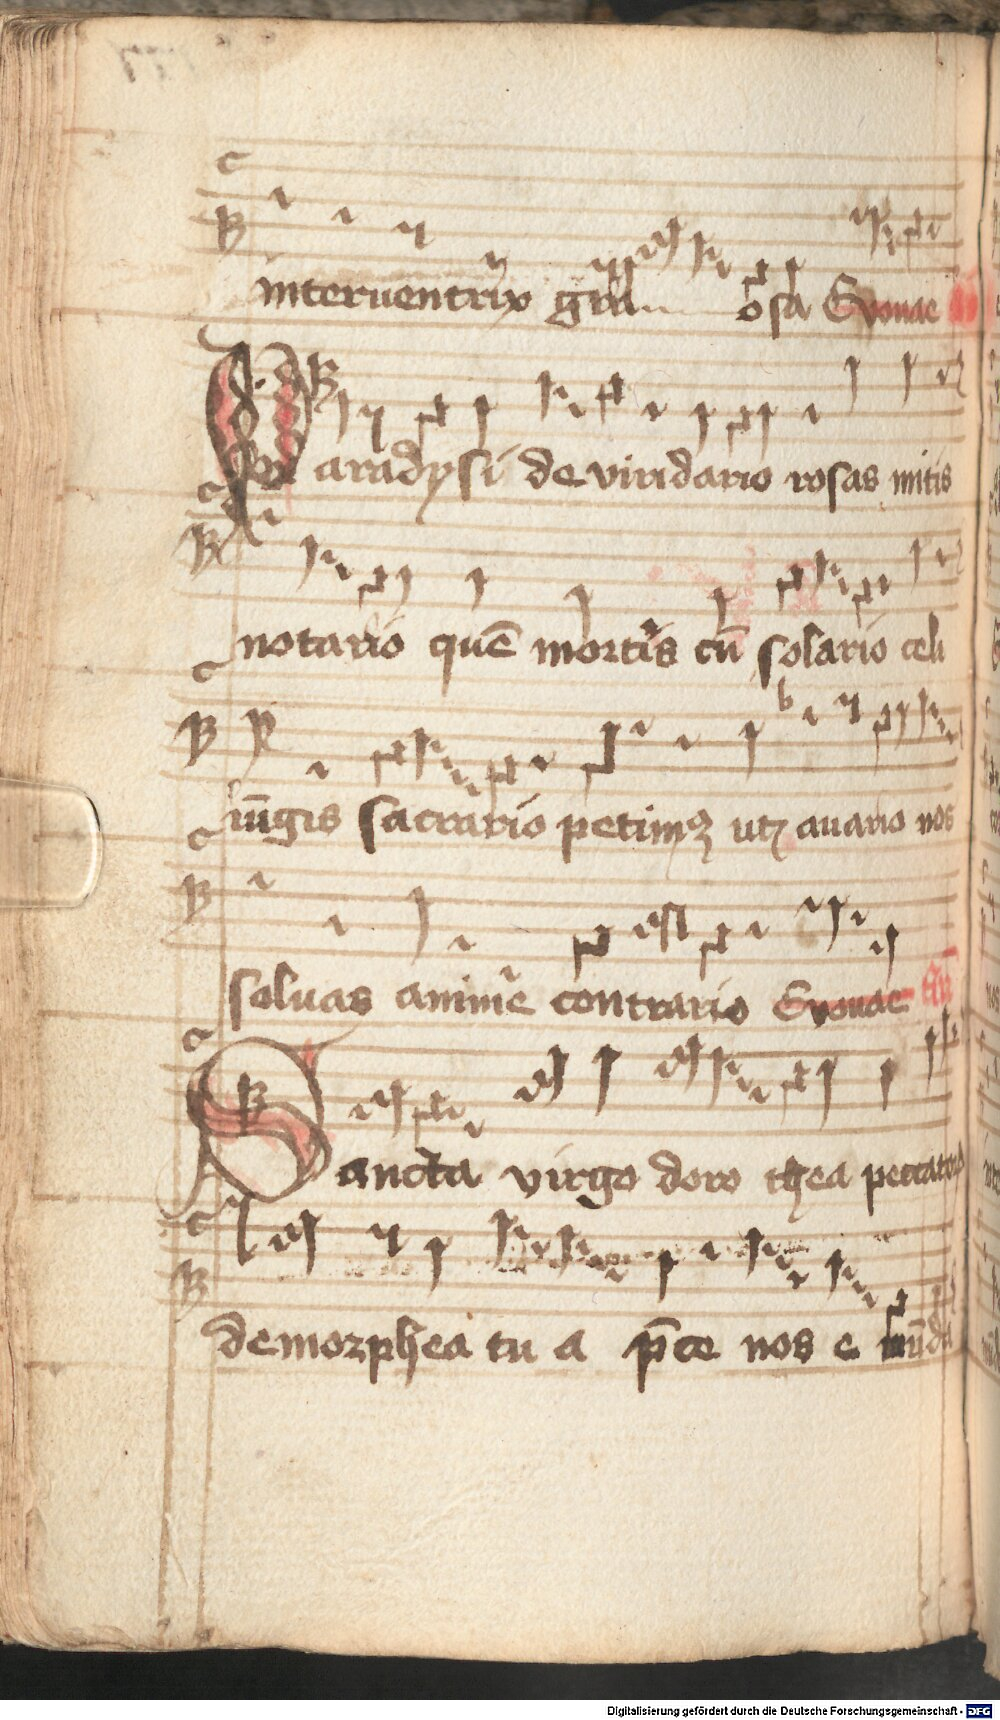 interuentrix gra osa Evouae
Paradysi de viridario rosas mitis
notario quē mortis cū solario celi
iūgis sacrario petimꝰ vt auario nos
soluas anime contrario Evouae
Sancta virgo doro thea peccator
demorphea tu a p̄ce nos e mūda
Digitalisierung gefördert durch die Deutsche Forschungsgemeinschaft - DFG